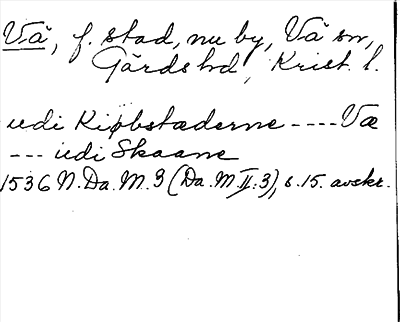 Vä, f. stad, nu by, Vä sn,
Gärds hd, Krist. l.
udi Kiøbstæderne ---- Væ
--- udi Skaane
1536 N. Da. M. 3 (Da. M II:3), s. 15. avskr.